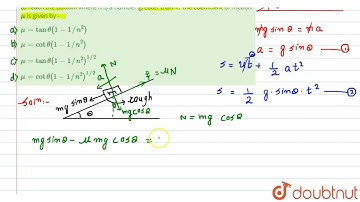 to reach the bottom where n is a number greater than 1, the coefficient of friction
μ is given by-
a) μ = tan θ(1 − 1/n²)
b) μ = cot θ(1 − 1/n²)
c) μ = tan θ(1 − 1/n²)^1/2
d) μ = cot θ(1 − 1/n²)^1/2
Soln:-
N
f = μN
a
m
rough
mg sinθ
mg cosθ
θ
θ
N = mg cosθ
mg sinθ - μ mg cosθ =
mg sinθ = ma
a = g sinθ - ①
s = ut + 1/2 at²
s = 1/2 g. sinθ. t² - ②
doubtnut